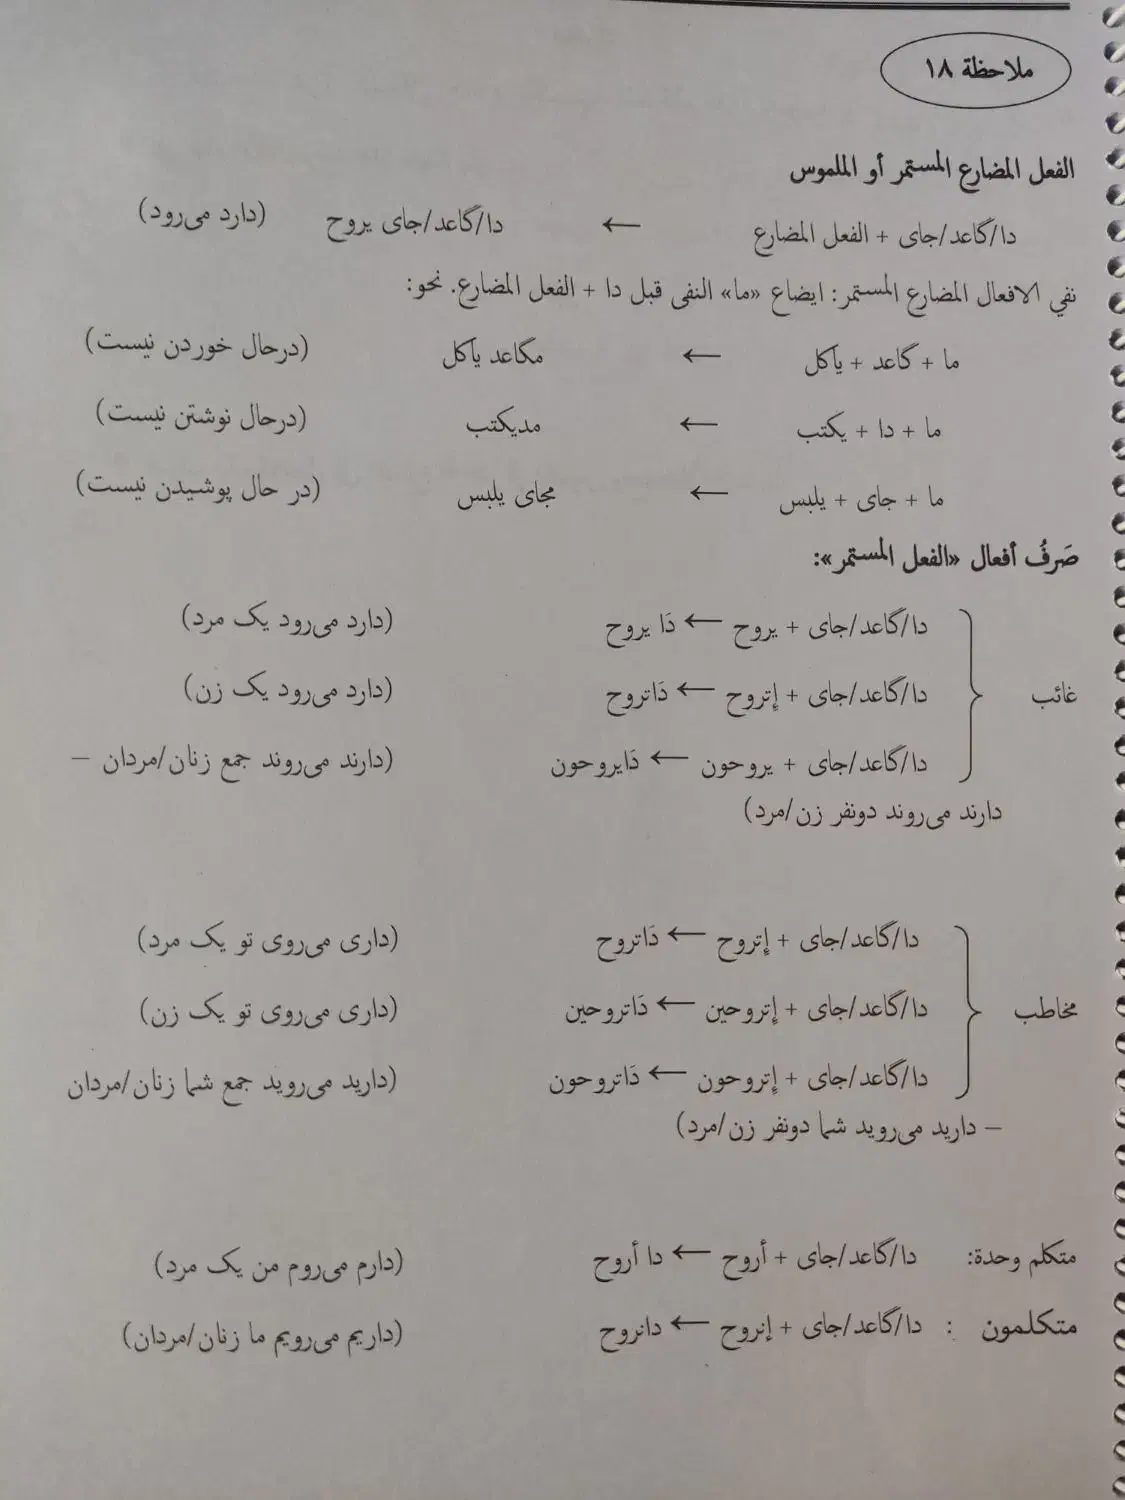 ملاحظة ١٨
الفعل المضارع المستمر أو الملموس
دا/گاعد/جای + الفعل المضارع ← دا/گاعد/جای يروح (دارد می‌رود)
نفي الافعال المضارع المستمر: ايضاع «ما» النفی قبل دا + الفعل المضارع. نحو:
ما + گاعد + ياكل ← مگاعد ياكل (درحال خوردن نیست)
ما + دا + يكتب ← مديكتب (درحال نوشتن نیست)
ما + جای + يلبس ← مجای يلبس (در حال پوشیدن نیست)
صَرفُ أفعال «الفعل المستمر»:
دا/گاعد/جای + يروح ← دَا يروح (دارد می‌رود یک مرد)
غائب دا/گاعد/جای + إتروح ← دَاتروح (دارد می‌رود یک زن)
دا/گاعد/جای + يروحون ← دَايروحون (دارند می‌روند جمع زنان/مردان –
دارند می‌روند دونفر زن/مرد)
دا/گاعد/جای + إتروح ← دَاتروح (داری می‌روی تو یک مرد)
مخاطب دا/گاعد/جای + إتروحين ← دَاتروحين (داری می‌روی تو یک زن)
دا/گاعد/جای + إتروحون ← دَاتروحون (دارید می‌روید جمع شما زنان/مردان
– دارید می‌روید شما دونفر زن/مرد)
متكلم وحدة: دا/گاعد/جای + أروح ← دا أروح (دارم می‌روم من یک مرد)
متكلمون : دا/گاعد/جای + إنروح ← دانروح (داریم می‌رویم ما زنان/مردان)